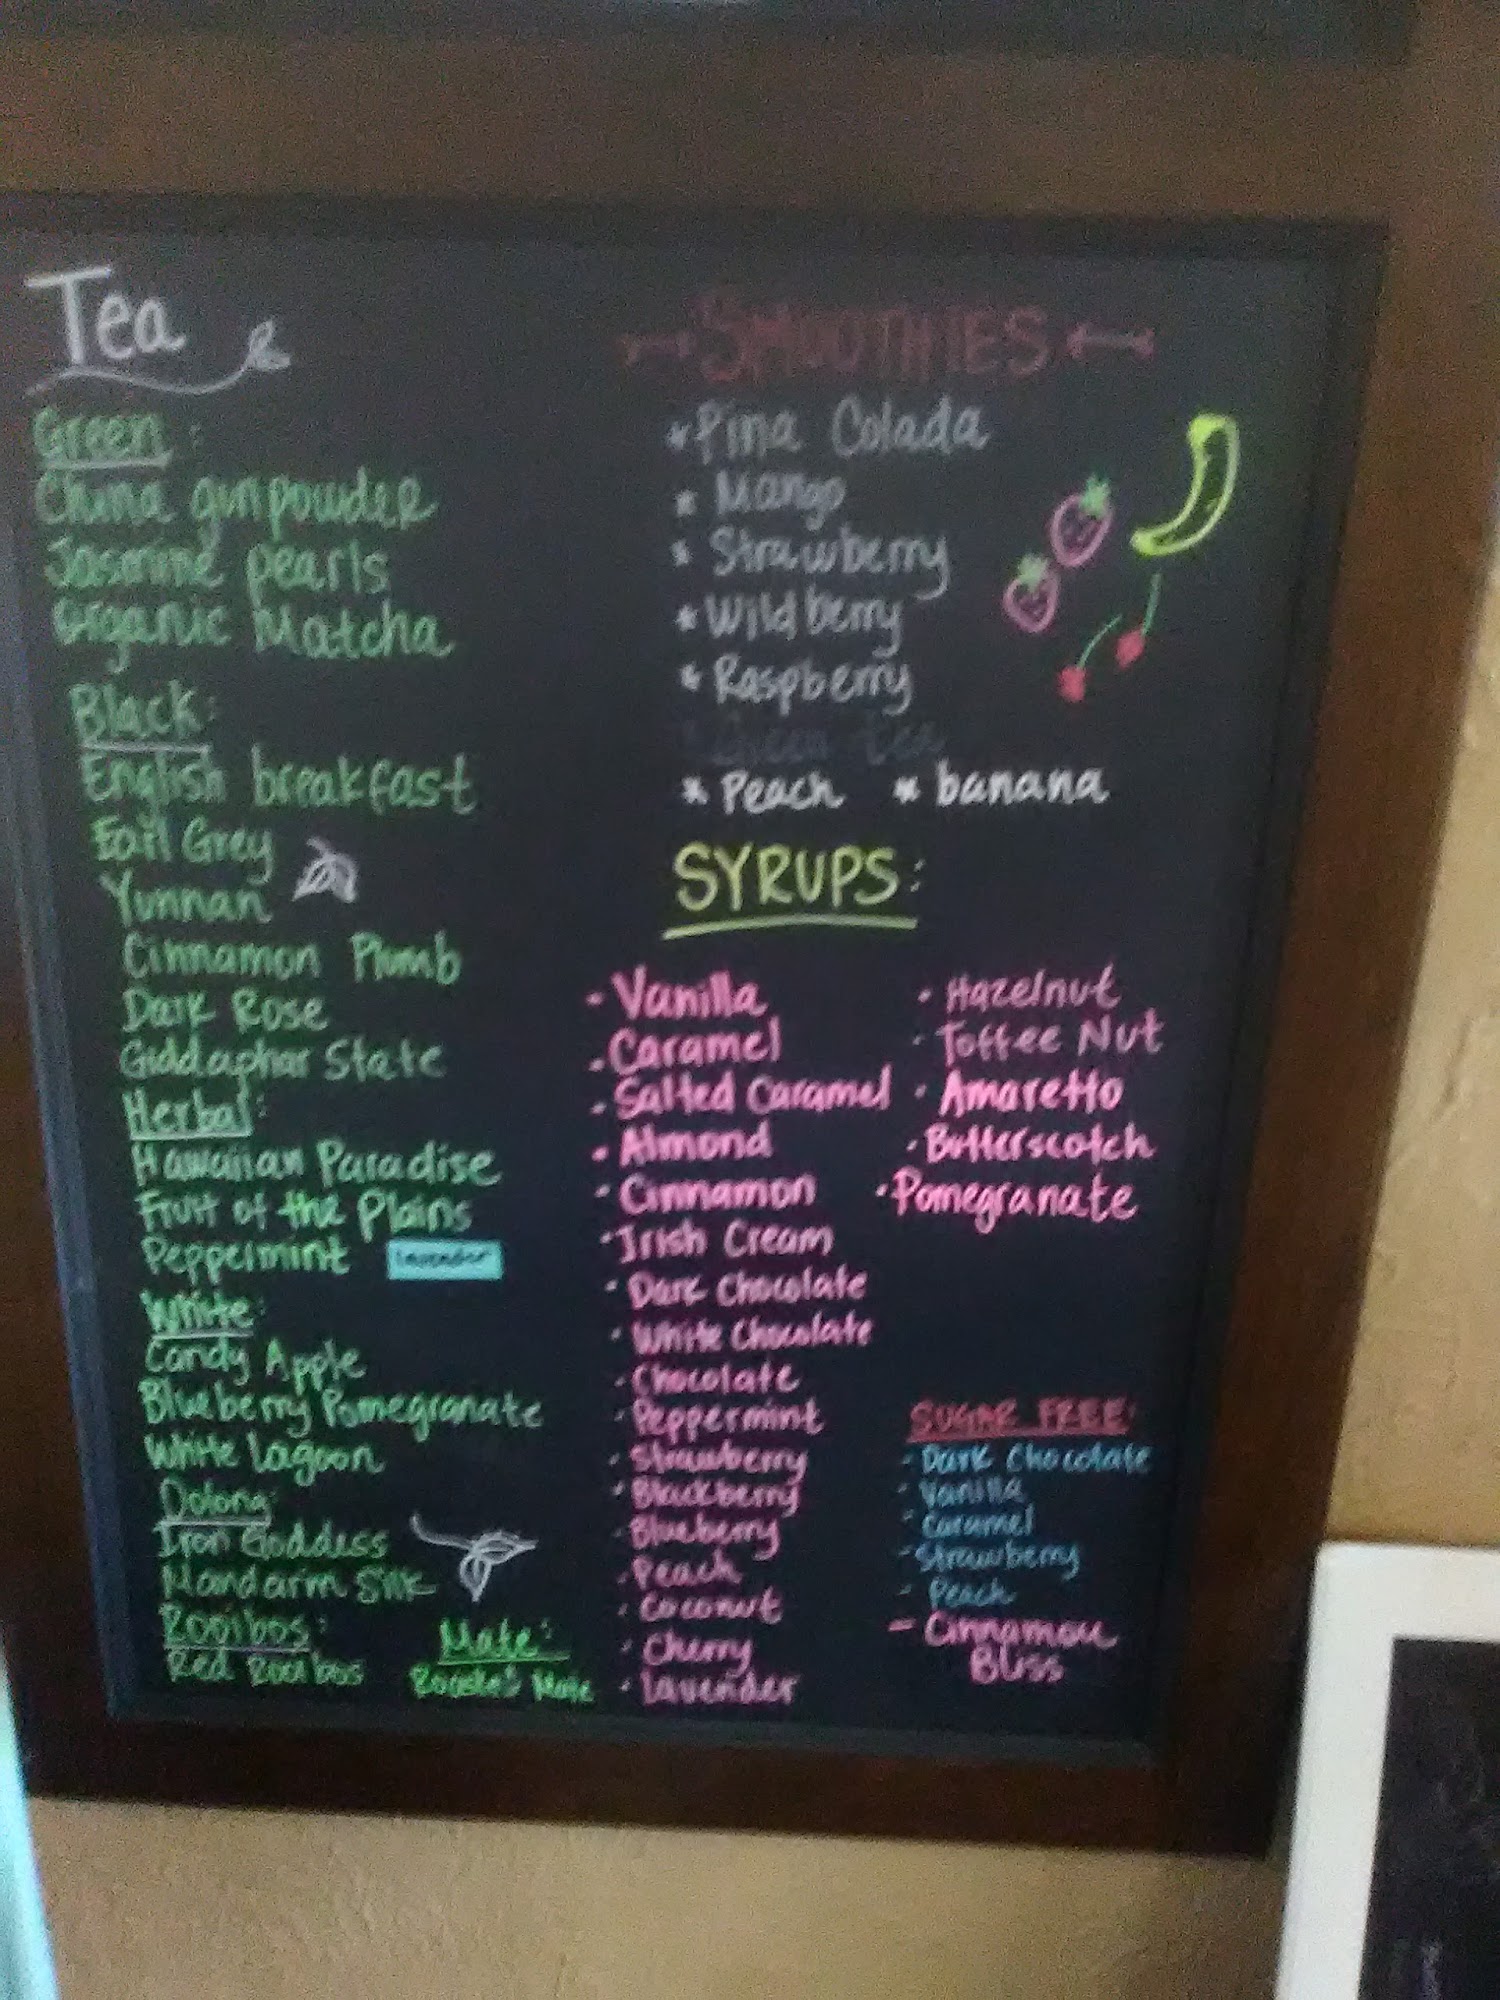 Tea
Green:
China gunpowder
Jasmine pearls
Organic Matcha
Black:
English breakfast
Earl Grey
Yunnan
Cinnamon Plumb
Dark Rose
Giddaphar State
Herbal:
Hawaiian Paradise
Fruit of the Plains
Peppermint lavender
White:
Candy Apple
Blueberry Pomegranate
White Lagoon
Oolong:
Iron Goddess
Mandarin Silk
Rooibos:
Red Rooibos
Mate:
Mate
SMOOTHIES
*Pina Colada
* Mango
* Strawberry
* Wildberry
* Raspberry
Green tea
* Peach * banana
SYRUPS:
- Vanilla
- Caramel
- Salted Caramel
- Almond
- Cinnamon
- Irish Cream
- Dark Chocolate
- White Chocolate
- Chocolate
- Peppermint
- Strawberry
- Blackberry
- Blueberry
- Peach
- Coconut
- Cherry
- lavender
- Hazelnut
- Toffee Nut
- Amaretto
- Butterscotch
- Pomegranate
SUGAR FREE:
- Dark Chocolate
- Vanilla
- Caramel
- Strawberry
- Peach
- Cinnamon
Bliss